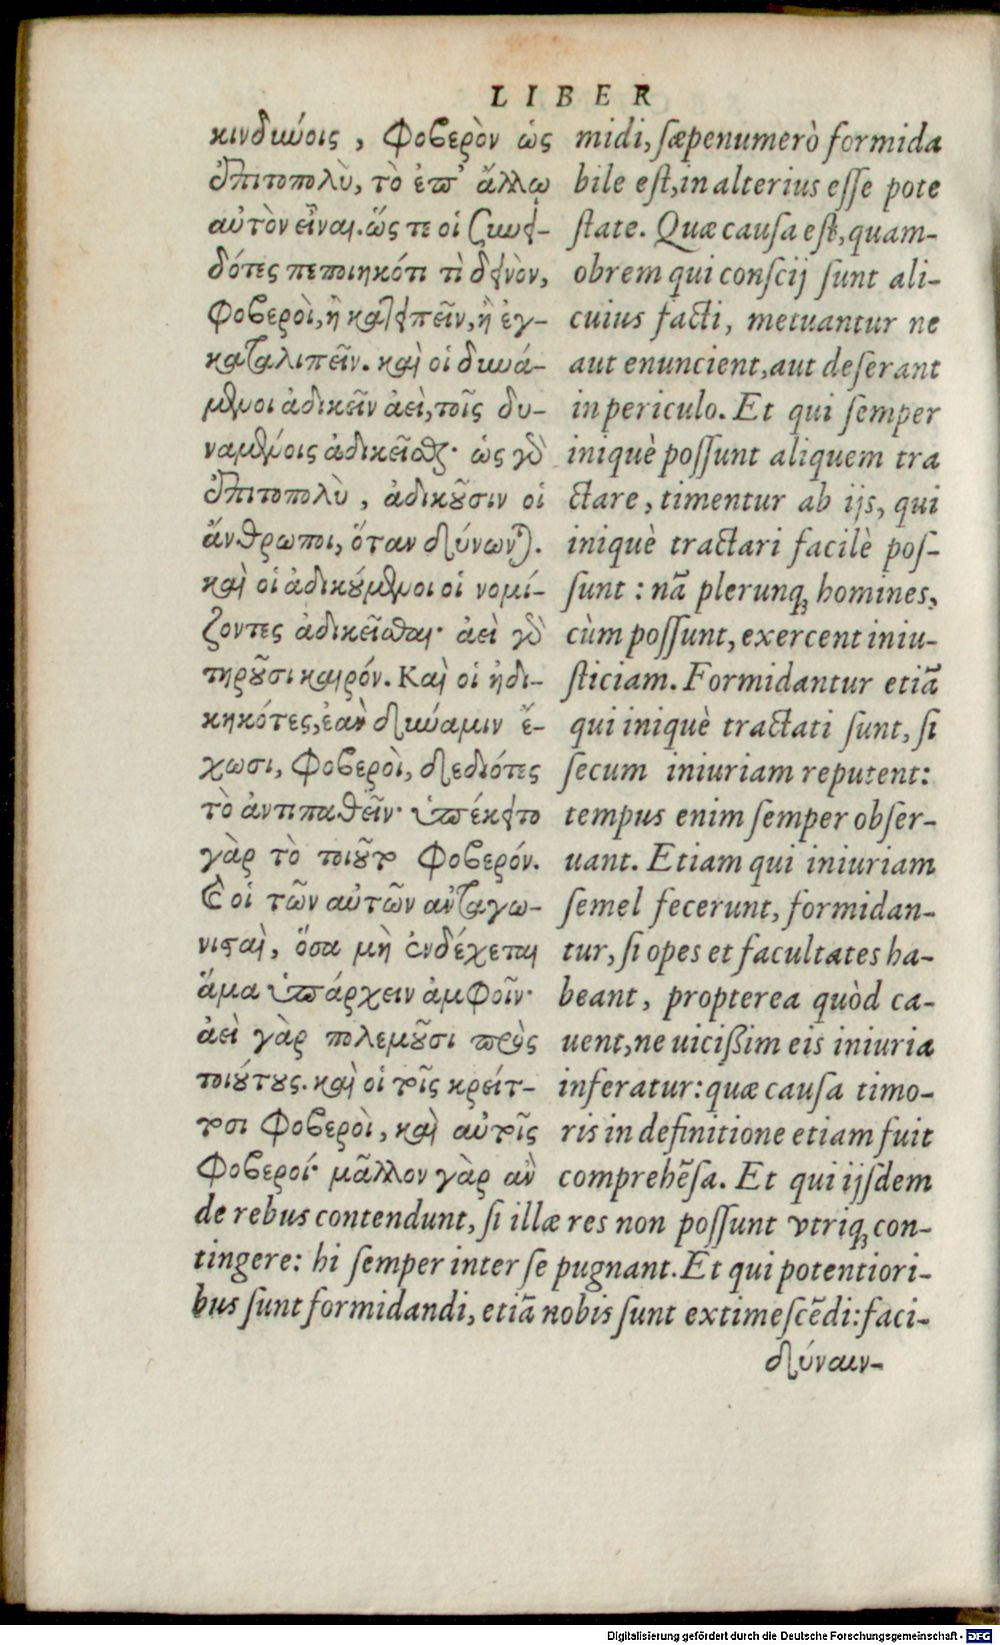 LIBER
κινδύνοις, φοβερὸν ὡς
ἐπιτοπολὺ, τὸ ἐπ' ἄλλῳ
αὐτὸν εἶναι. ὥς τε οἱ συνει-
δότες πεποιηκότι τὶ δεινὸν,
φοβεροὶ, ἢ κατειπεῖν, ἢ ἐγ-
καταλιπεῖν. καὶ οἱ δυνά-
μενοι ἀδικεῖν ἀεὶ, τοῖς δυ-
ναμένοις ἀδικεῖσθαι· ὡς γὸ
ἐπιτοπολὺ, ἀδικοῦσιν οἱ
ἄνθρωποι, ὅταν δύνωνται.
καὶ οἱ ἀδικούμενοι οἱ νομί-
ζοντες ἀδικεῖσθαι· ἀεὶ γὸ
τηροῦσι καιρόν. Καὶ οἱ ἠδι-
κηκότες, ἐὰν δύναμιν ἔ-
χωσι, φοβεροὶ, δεδιότες
τὸ ἀντιπαθεῖν· ὑπέκειτο
γὰρ τὸ τοιοῦτο φοβερόν.
Καὶ οἱ τῶν αὐτῶν ἀνταγω-
νισταὶ, ὅσα μὴ ἐνδέχεται
ἅμα ὑπάρχειν ἀμφοῖν·
ἀεὶ γὰρ πολεμοῦσι πρὸς
τοιούτους. καὶ οἱ τοῖς κρείτ-
τοσι φοβεροὶ, καὶ αὐτοῖς
φοβεροί· μᾶλλον γὰρ ἂν
midi, sæpenumerò formida
bile est, in alterius esse pote
state. Quæ causa est, quam-
obrem qui conscij sunt ali-
cuius facti, metuantur ne
aut enuncient, aut deserant
in periculo. Et qui semper
iniquè possunt aliquem tra
ctare, timentur ab ijs, qui
iniquè tractari facilè pos-
sunt: nã plerunq; homines,
cùm possunt, exercent iniu-
sticiam. Formidantur etiã
qui iniquè tractati sunt, si
secum iniuriam reputent:
tempus enim semper obser-
uant. Etiam qui iniuriam
semel fecerunt, formidan-
tur, si opes et facultates ha-
beant, propterea quòd ca-
uent, ne uicißim eis iniuria
inferatur: quæ causa timo-
ris in definitione etiam fuit
comprehẽsa. Et qui ijsdem
de rebus contendunt, si illæ res non possunt vtriq; con-
tingere: hi semper inter se pugnant. Et qui potentiori-
bus sunt formidandi, etiã nobis sunt extimescẽdi: faci-
δύναιν-
Digitalisierung gefördert durch die Deutsche Forschungsgemeinschaft - DFG